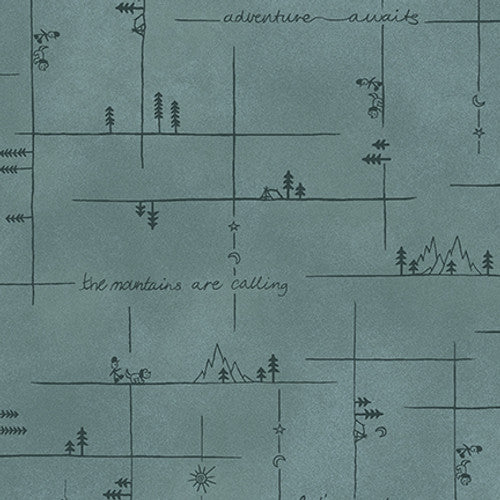 adventure awaits
the mountains are calling